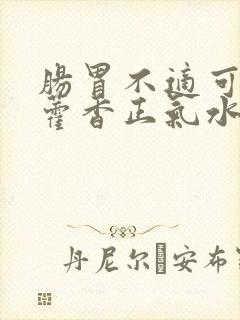 腸胃不適可
藿香正氣水
丹尼尔·安布